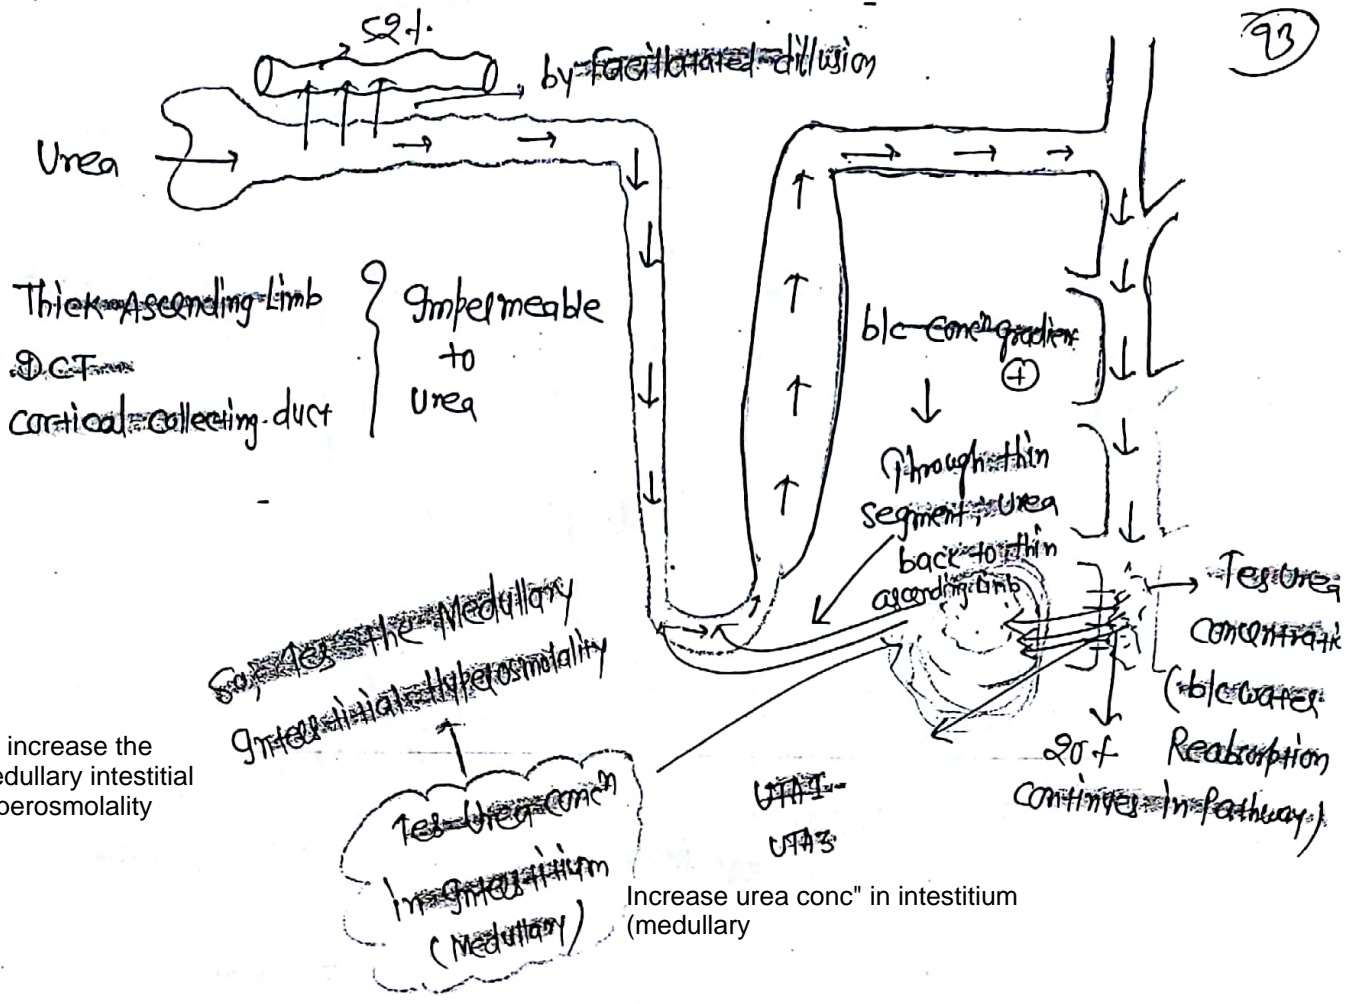 93
52%
by facilatated dillusion
Urea
Thick Ascending Limb
DCT
cortical collecting duct
Impermeable
to
Urea
b/c concⁿ gradient
+
Through thin
segment, urea
back to thin
ascending limb
↑es Urea
concentratⁿ
(b/c water
Reabsorption
continues in Pathway)
So, ↑es the Medullary
Interstitial Hyperosmolality
increase the
edullary intestitial
perosmolality
↑es Urea concⁿ
in Interstitium
(Medullary)
UTA1
UTA3
Increase urea conc" in intestitium
(medullary